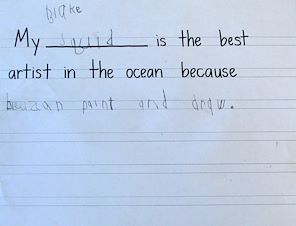 Blake
My squid is the best
artist in the ocean because
paint and draw.